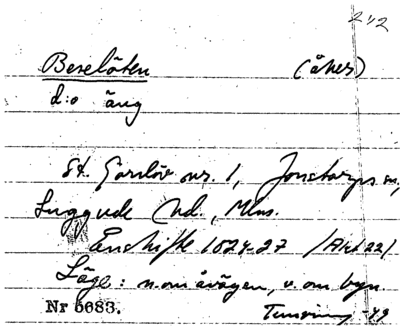 212
Beselöten (åker)
d:o äng
St. Görslöv nr. 1, Jonstorps sn,
Luggude hd., Mlm.
Enskifte 1824-27 /Akt 22/
Läge: n. om åvägen, v. om byn
Nr 5683. -49